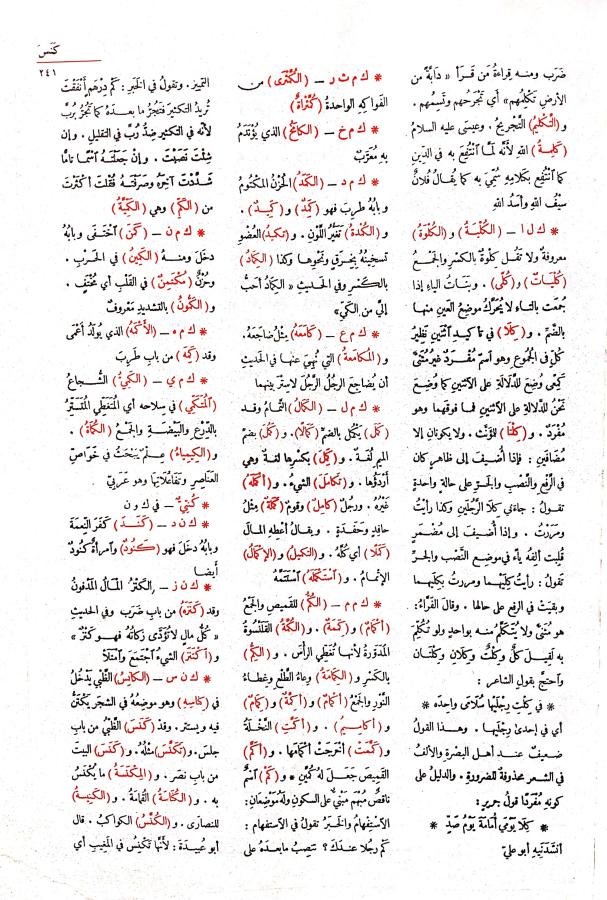 كَنَسَ
٢٤١
ضَرَب ومنه قِراءةُ مَن قَرأ « دَابَّةً من
الأرضِ تَكْلِمُهُم» أي تَجْرَحُهم وتَسِمُهم .
و(التَّكْلِيمُ) التَّجْرِيحُ . وعيسى عليه السلامُ
(كَلِمةُ) اللهِ لأَنَّه لمَّا ٱنْتُفِعَ به في الدِّينِ
كما ٱنْتُفِعَ بكَلَامِهِ سُمِّيَ به كما يُقالُ فُلانٌ
سَيْفُ اللهِ وأَسَدُ اللهِ
* ك ل ا – (الكُلْيَةُ) و (الكُلْوَةُ)
معروفةٌ ولا تَقُل كِلْوةٌ بالكَسْرِ والجمعُ
(كُلْيَاتٌ) و (كُلًى) . وبَنَاتُ الياءِ إذا
جُمعَت بالتاء لا يُحَرَّكُ موضِعُ العَينِ منها
بالضَّمِّ . و (كِلَا) في تأكِيدِ ٱثْنَينِ نَظِيرُ
كُلٍّ في المجْمُوعِ وهو اسمٌ مُفْرَدٌ غيرُ مُثَنًّى
كَمِعًى وُضِعَ للدَّلالةِ على الاثْنَينِ كما وُضِعَ
نَحْنُ للدَّلالة على الاثْنينِ فما فوقَهما وهو
مُفْرَدٌ . و (كِلْتَا) للمُؤنَّث . ولا يكُونانِ إلا
مُضَافَينِ : فإذا أُضيفَ إلى ظاهرٍ كان
في الرَّفْع والنَّصْبِ والجَرِّ على حالةٍ واحدةٍ
تقولُ : جاءَني كِلَا الرَّجُلَينِ وكذا رأيتُ
ومَرَرْتُ . وإذا أُضيفَ إلى مُضْمَرٍ
قُلِبَت ألِفُه ياءً في موضعِ النَّصْب والجَرِّ
تَقولُ : رأيتُ كِلَيْهِما ومررتُ بكِلَيهِما
وبقيَت في الرفع على حالها . وقالَ الفَرَّاءُ :
هو مُثَنًّى ولا يُتَكلَّمُ منه بواحدٍ ولو تُكُلِّمَ
به لقِيلَ كِلٌ وكِلْتٌ وكِلانِ وكِلْتَانِ
وٱحتجَّ بقولِ الشاعر :
* في كِلْتِ رِجْلَيها سُلَامَى واحِدَه *
أي في إحدى رِجْلَيها . وهــذا القولُ
ضعيفٌ عند أهلِ البصرةِ والألفُ
في الشعرِ محذوفةٌ للضرورةِ . والدليلُ على
كونِه مُفْرَدًا قولُ جريرٍ :
* كِلَا يَوْمَيْ أُمَامَةَ يَوْمُ صَدٍّ *
أنشَدَنِيهِ أبو عليّ
* ك م ث ر – (الكُمَّثْرَى) من
الفَواكِهِ الواحدةُ (كُمَّثْرَاةٌ)
* ك م خ – (الكَامَخُ) الذي يُؤْتَدَمُ
به مُعَرَّبٌ
* ك م د – (الكَمَدُ) الحُزْنُ المكتُومُ
وبابُهُ طَرِبَ فهو (كَمِدٌ) و (كَمِيدٌ) .
و (الكُمْدَةُ) تَغيُّرُ اللَّونِ . و(تكميدُ) العُضْوِ
تسخِينُهُ بِخِرَقٍ ونَحْوِها وكذا (الكِمَادُ)
بالكَسْرِ وفي الحديثِ « الكِمَادُ أَحَبُّ
إليَّ من الكَيِّ»
* ك م ع – (كَامَعَهُ) مِثْلُ ضَاجَعَهُ .
و (المُكامَعةُ) التي نُهِيَ عنها في الحديثِ
أن يُضاجِعَ الرجُلُ الرَّجُلَ لا سِتْرَ بينهما
* ك م ل – (الكَمَالُ) التَّمامُ وقد
(كَمَلَ) يَكْمُل بالضمِّ (كَمَالًا). و (كَمُلَ) بضمِّ
الميمِ لُغةٌ . و (كَمِلَ) بكَسْرِها لغةٌ وهي
أَرْدَؤُها . و (تَكَامَلَ) الشيءُ . و (أَكْمَلَهُ)
غَيْرُهُ . ورجلٌ (كامِلٌ) وقومٌ (كَمَلةٌ) مِثْلُ
حافِدٍ وحَفَدَةٍ . ويقالُ أعْطِهِ المالَ
(كَمَلًا) أي كُلَّهُ . و (التَّكميلُ) و(الإكْمَالُ)
الإتمامُ . و (ٱسْتَكْمَلَهُ) ٱسْتَتَمَّهُ
* ك م م – (الكُمُّ) للقَميصِ والجَمْعُ
(أَكْمَامٌ) و (كِمَمَةٌ) . و (الكُمَّةُ) القَلَنْسُوةُ
المُدوَّرةُ لأنها تُغَطِّي الرأْسَ . و (الكِمُّ)
بالكسْرِ و (الكِمَامَةُ) وِعاءُ الطَّلْعِ وغِطاءُ
النَّوْرِ والجمعُ (أَكمَامٌ) و (أَكِمَّةٌ) و (كِمَامٌ)
و (أَكامِيمُ) . و (أَكَمَّتِ) النَّخْلةُ
و (كَمَّمَت) أَخْرجَتْ أَكْمَامَها . و (أَكَمَّ)
القَميصَ جَعَلَ له كُمَّينِ . و (كَمْ) ٱسْمٌ
ناقصٌ مُبهَمٌ مَبْنيٌّ على السكونِ وله مَوْضِعَانِ:
الاسْتِفهامُ والخَبَرُ تقولُ في الاستفهامِ :
كَمْ رجلًا عندَكَ ؟ تنصِبُ ما بعدَهُ على
التمييز . وتقولُ في الخَبَرِ : كَمْ دِرْهَمٍ أَنْفَقْتَ
تُريدُ التكثيرَ فتَجُرُّ ما بعدَهُ كما تَجُرُّ برُبَّ
لأنه في التكثيرِ ضِدُّ رُبَّ في التقليلِ . وإن
شِئْتَ نَصَبْتَ . وإنْ جَعَلْتَهُ ٱسمًا تامًّا
شَدَّدْتَ آخِرَهُ وصَرَفْتَهُ فقُلتَ أَكْثَرْتَ
من (الكَمِّ) وهي (الكَمِّيَّةُ)
* ك م ن – (كَمَنَ) ٱخْتَفَى وبابُهُ
دخَلَ ومنه (الكَمِينُ) في الحَرْبِ .
وحُزْنٌ (مُكْتَمِنٌ) في القَلْبِ أي مُخْتَفٍ .
و (الكَمُّونُ) بالتشديدِ مَعروفٌ
* ك م ه – (الأَكْمَهُ) الذي يُولَدُ أعْمَى
وقد (كَمِهَ) من بابِ طَرِبَ
* ك م ي – (الكَمِيُّ) الشُّجاعُ
(المُتَكَمِّي) في سِلاحِه أي المُتَغطِّي المُتَستِّرُ
بالدِّرْعِ والبَيْضَةِ والجَمْعُ (الكُمَاةُ) .
و (الكِيمياءُ) عِلْمٌ يَبْحَثُ في خَواصِّ
العَناصِرِ وتَفَاعُلَاتِها وهو عَرَبيٌّ
* كُنْيٌ – في ك و ن
* ك ن د – (كَنَدَ) كَفَرَ النِّعمَةَ
وبابُهُ دخَلَ فهو (كَنُودٌ) وٱمرأةٌ كَنُودٌ
أيضا
* ك ن ز – (الكَنْزُ) المالُ المَدْفونُ
وقد (كَنَزَهُ) من بابِ ضَرَبَ وفي الحديثِ
« كُلُّ مالٍ لا تُؤَدَّى زكاتُهُ فهــو كَنْزٌ »
و (ٱكْتَنَزَ) الشيءُ ٱجْتَمعَ وٱمْتلَأَ
* ك ن س – (الكانِسُ) الظَّبْيُ يَدْخُلُ
في (كِناسِهِ) وهو موضِعُهُ في الشجَرِ يَكْتَنُّ
فيه ويستترُ . وقد (كَنَسَ) الظَّبْيُ من بابِ
جلَسَ . و(تَكَنَّسَ) مثلُه . و (كَنَسَ) البيتَ
من بابِ نصَر . و (المِكْنَسَةُ) ما يُكْنَسُ
به . و (الكُنَاسَةُ) القُمامَةُ . و (الكَنِيسَةُ)
للنصارَى . و (الكُنَّسُ) الكواكبُ . قال
أبو عبيدةَ : لأنَّها تَكْنِسُ في المَغيبِ أي